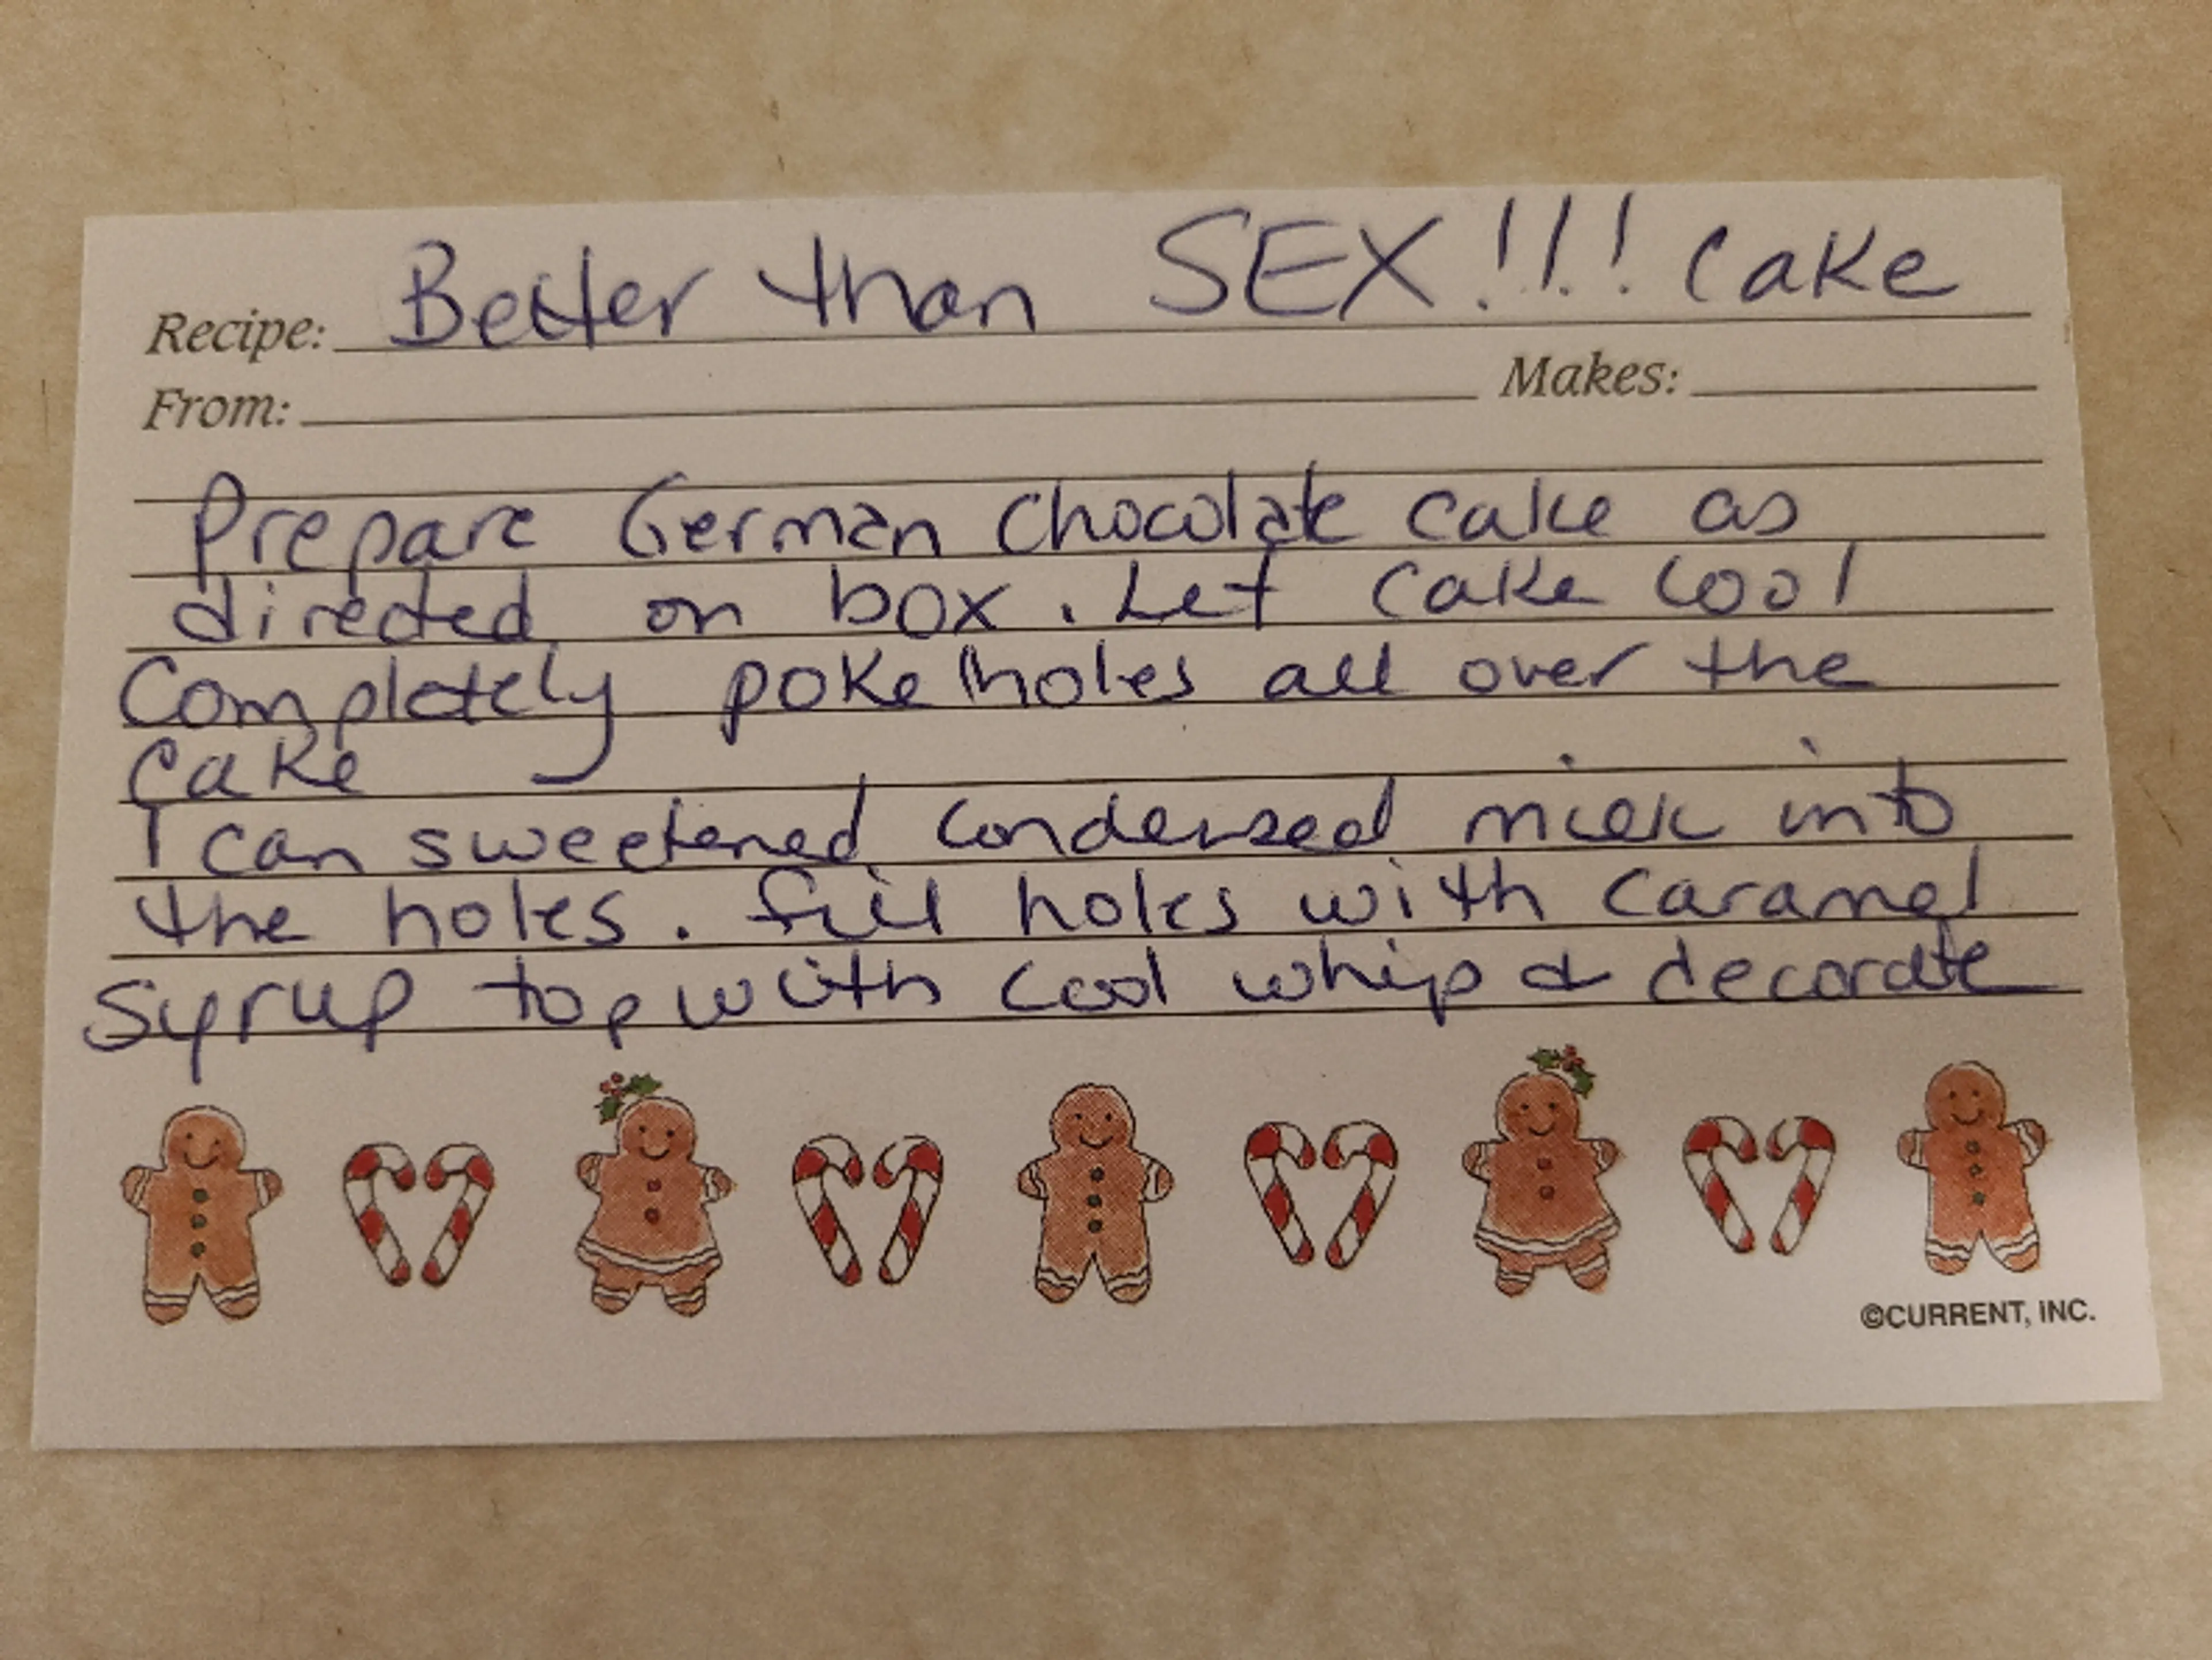 Recipe: Better than SEX!!! Cake
From: Makes:
Prepare German Chocolate Cake as
directed on box. Let Cake Cool
Completely poke holes all over the
Cake
1 can sweetened condensed milk into
the holes. fill holes with Caramel
Syrup top with cool whip & decorate
©CURRENT, INC.